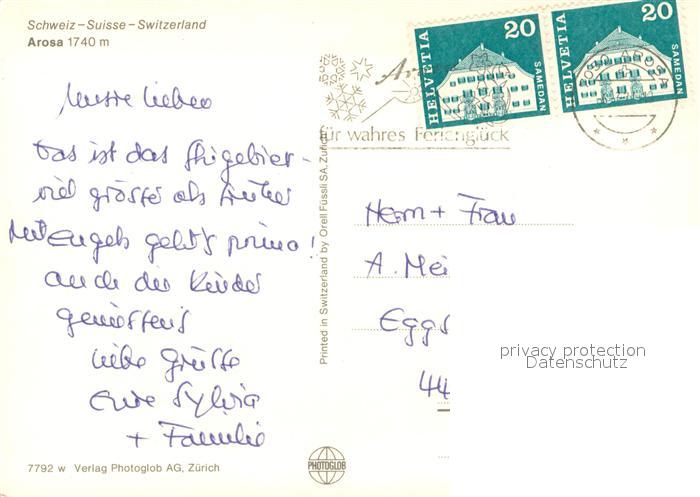 Schweiz – Suisse – Switzerland
Arosa 1740 m
Unsere Lieben
Das ist das Skigebiet –
viel grösser als früher
Mit Engels geht's prima!
auch die Kinder
geniessens
Liebe Grüsse
Eure Sylvia
+ Familie
7792 w Verlag Photoglob AG, Zürich
Printed in Switzerland by Orell Füssli SA, Zürich
PHOTOGLOB
Arosa
für wahres Ferienglück
HELVETIA 20 SAMEDAN
HELVETIA 20 SAMEDAN
AROSA
Herrn + Frau
A. Mei
Eggs
44
privacy protection
Datenschutz